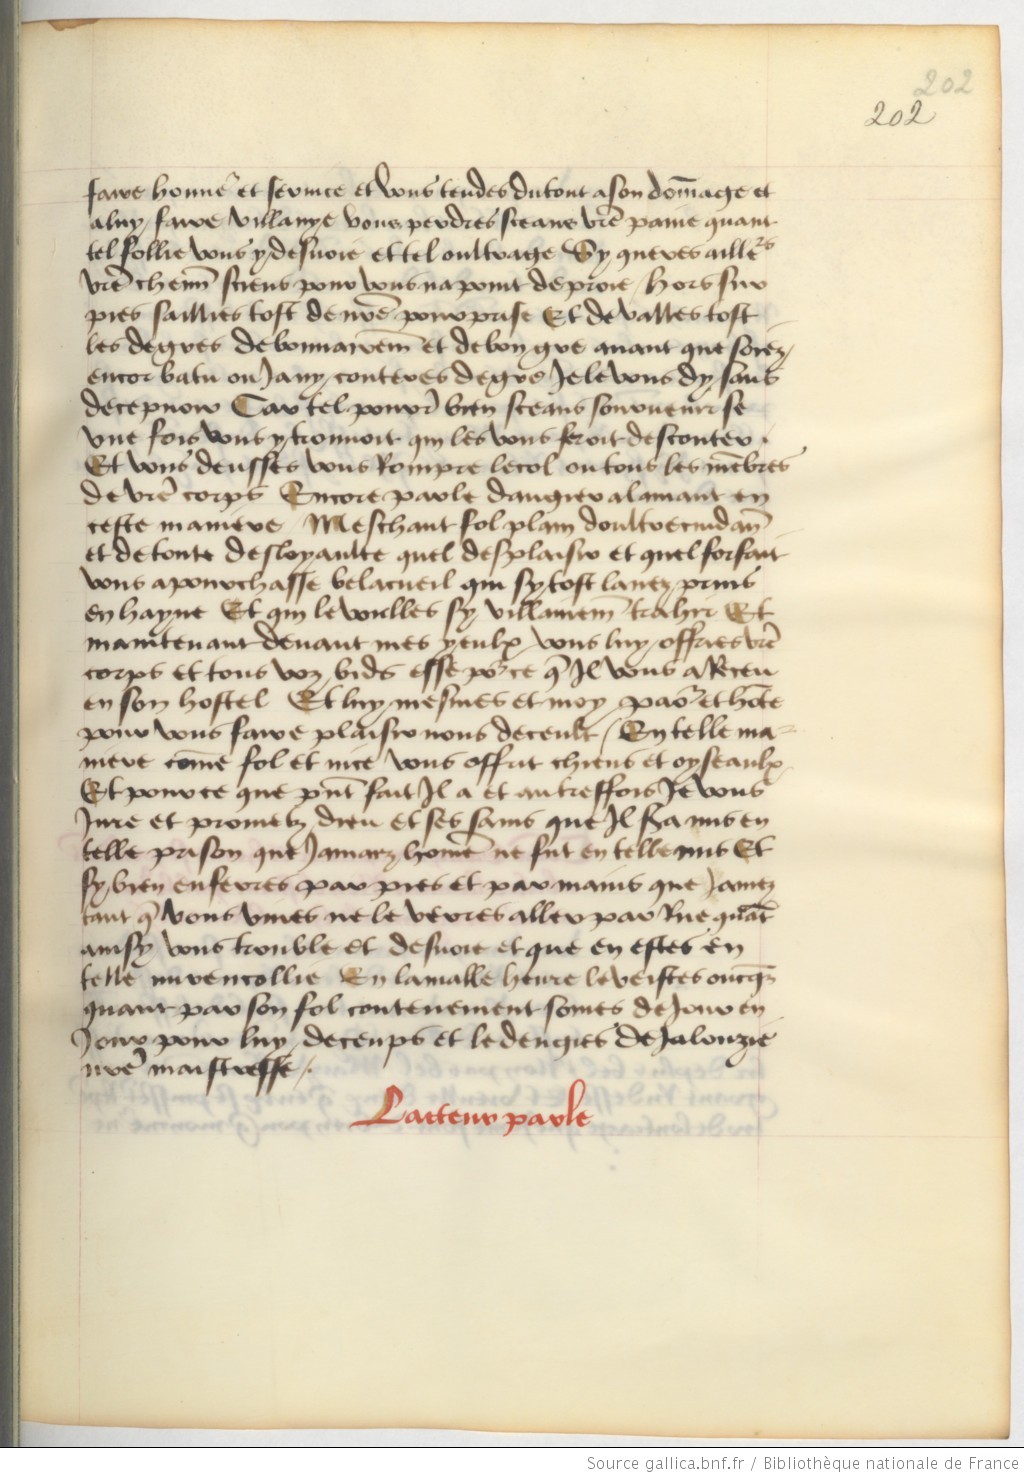 202
202
faire honne᷑ et service et vous tendes du tout a son dom̄age et
a luy faire villanye vous perdres sceans vr̄e paine quant
tel follie vous y desvoie et tel oultrage Sy queres aille᷑s
vr̄e chemī sciens pour vous na point de proie hors sur
pies saillies tost de nr̄e pourprise Et devalles tost
les degres debonnairem̄ et de bon gre avant que soiez
encor batu ou Jamy conteres degre Je le vous dy sans
decepnoir Car tel pour᷑ bien sceans sourvenir se
une fois vous y trouvoit qui les vous feroit desconter
Et vous deusses vous Rompre le col ou tous les mēbres
de vr̄e corps Encore parle dangier a lamant en
ceste maniere Meschant fol plain doultrecuidan̄
et de toute desloyaulte quel desplaisir et quel forfait
vous a pourchasse belacueil qui sy tost lavez prins
en hayne Et qui le voulles sy villainem̄ trahir Et
maintenant devant mes yeulx vous luy offries vr̄e
corps et tous voz bids esse po᷑ce q̄ Il vous a Receu
en son hostel Et luy mesmes et moy pao᷑ et hōte
pour vous faire plaisir nous deceult / En telle ma-
niere com̄e fol et nice vous offrit chiens et oyseaulx
Et pource que p̄nt fait Il a et autreffois Je vous
Jure et prometz dieu et ses sains que Il s̄ra mis en
telle prison que Jamaiz hom̄e ne fut en telle mis Et
sy bien enferres par pies et par mains que Jamez
tant q̄ vous vives ne le verres aller par Rue quāt
ainsy vous trouble et desvoie et que en estes en
telle mirencollie En la malle heure le veistes oncq̄s
quant par son fol contenement som̄es de Jour en
Jour pour luy deceups et ledengies de Jalouzie
nr̄e maistresse /.
Lacteur parle
Source gallica.bnf.fr / Bibliothèque nationale de France